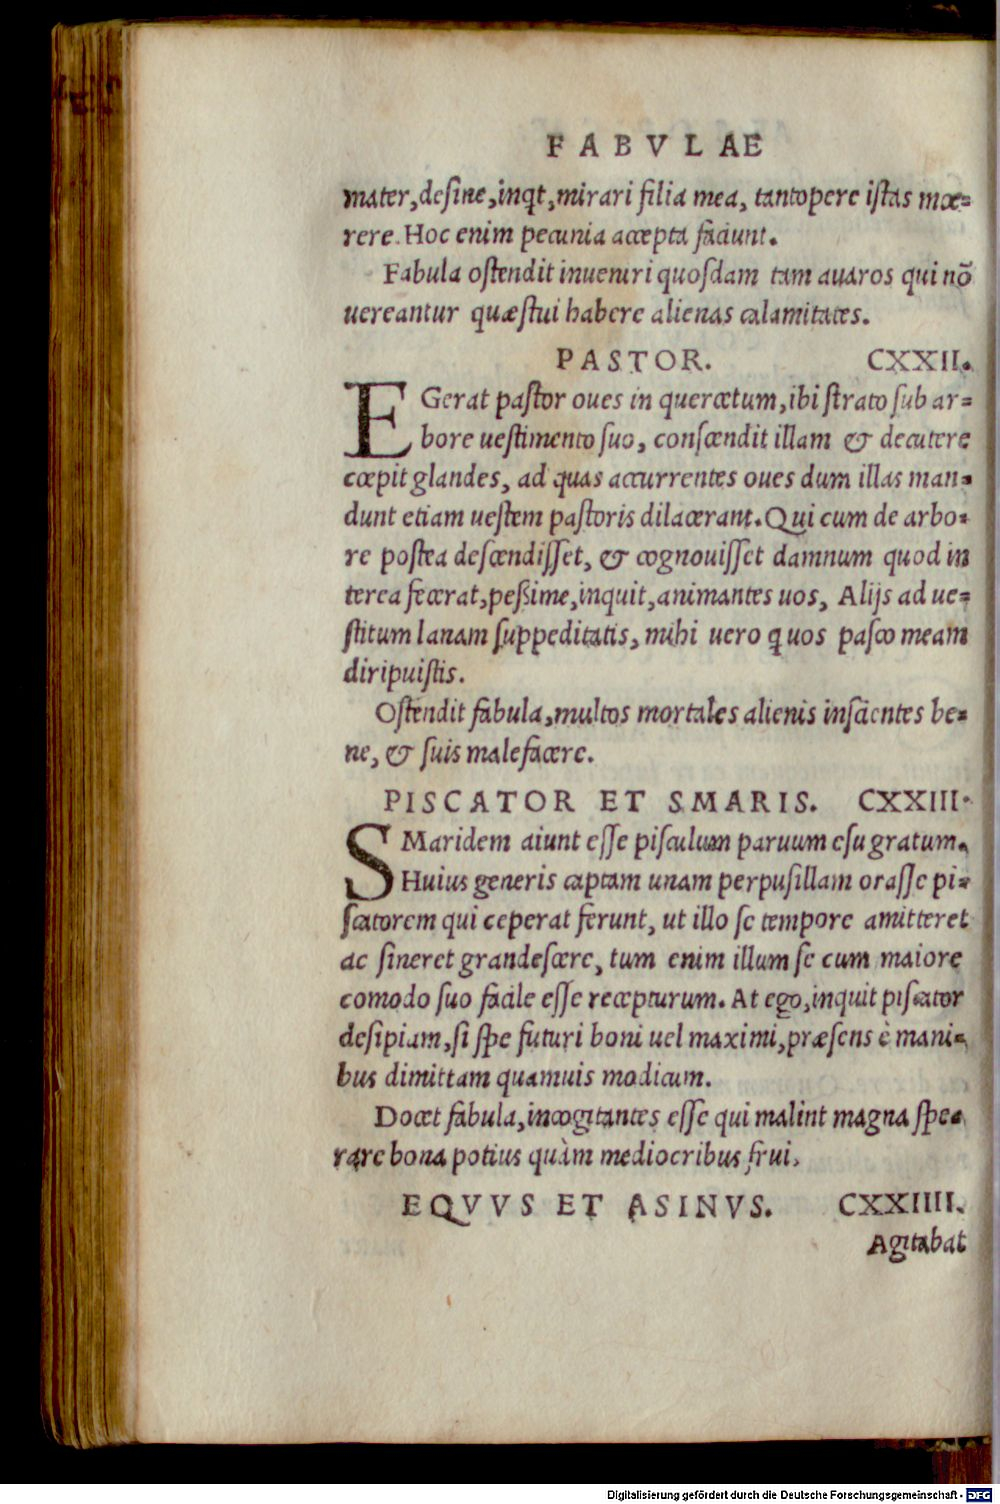 FABVLAE
mater, desine, inqt, mirari filia mea, tantopere istas mœ=
rere. Hoc enim pecunia accepta faciunt.
Fabula ostendit inueniri quosdam tam auaros qui nõ
uereantur quæstui habere alienas calamitates.
PASTOR. CXXII.
EGerat pastor oues in quercetum, ibi strato sub ar=
bore uestimento suo, conscendit illam & decutere
cœpit glandes, ad quas accurrentes oues dum illas man=
dunt etiam uestem pastoris dilacerant. Qui cum de arbo=
re postea descendisset, & cognouisset damnum quod in
terea fecerat, peßime, inquit, animantes uos, Alijs ad ue=
stitum lanam suppeditatis, mihi uero q uos pasco meam
diripuistis.
Ostendit fabula, multos mortales alienis inscientes be=
ne, & suis malefacere.
PISCATOR ET SMARIS. CXXIII.
SMaridem aiunt esse pisculum paruum esu gratum.
Huius generis captam unam perpusillam orasse pi=
scatorem qui ceperat ferunt, ut illo se tempore amitteret
ac sineret grandescere, tum enim illum se cum maiore
comodo suo facile esse recepturum. At ego, inquit piscator
desipiam, si spe futuri boni uel maximi, præsens è mani=
bus dimittam quamuis modicum.
Docet fabula, incogitantes esse qui malint magna spe=
rare bona potius quàm mediocribus frui.
EQVVS ET ASINVS. CXXIIII.
Agitabat
Digitalisierung gefördert durch die Deutsche Forschungsgemeinschaft - DFG